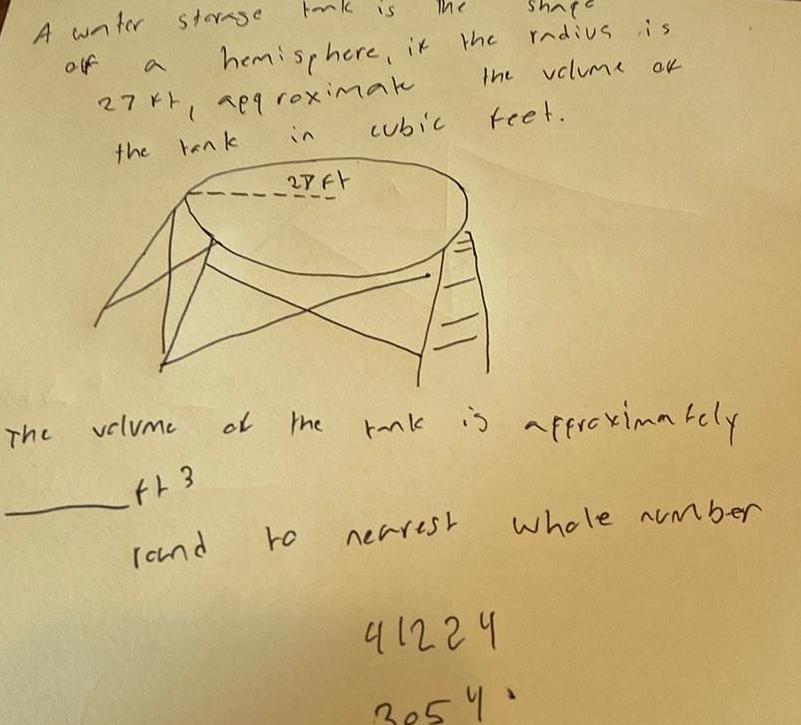 A water storage tank is the shape
of a hemisphere, if the radius is
27 ft, approximate the volume of
the tank in cubic feet.
27 ft
The volume of the tank is approximately
______ ft 3
round to nearest whole number
41224
3054.